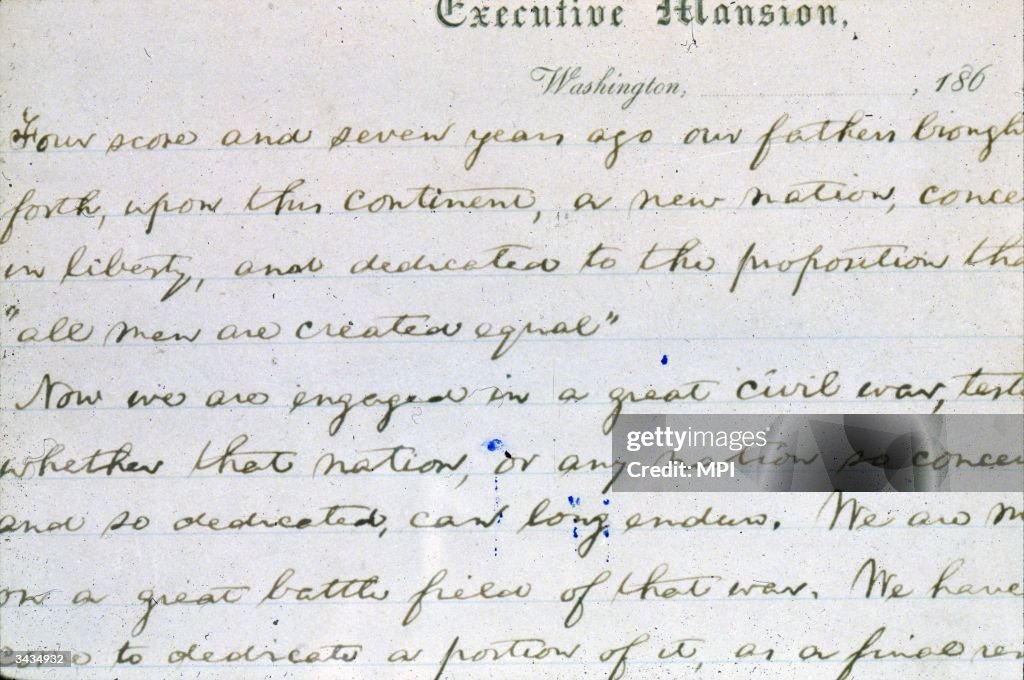 Executive Mansion,
Washington, , 186
Four score and seven years ago our fathers brough
forth, upon this continent, a new nation, concei
in liberty, and dedicated to the proposition tha
"all men are created equal"
Now we are engaged in a great civil war, testi
whether that nation, or any nation so concei
and so dedicated, can long endure. We are m
on a great battle field of that war. We have
come to dedicate a portion of it, as a final res
gettyimages®
Credit: MPI
3434932